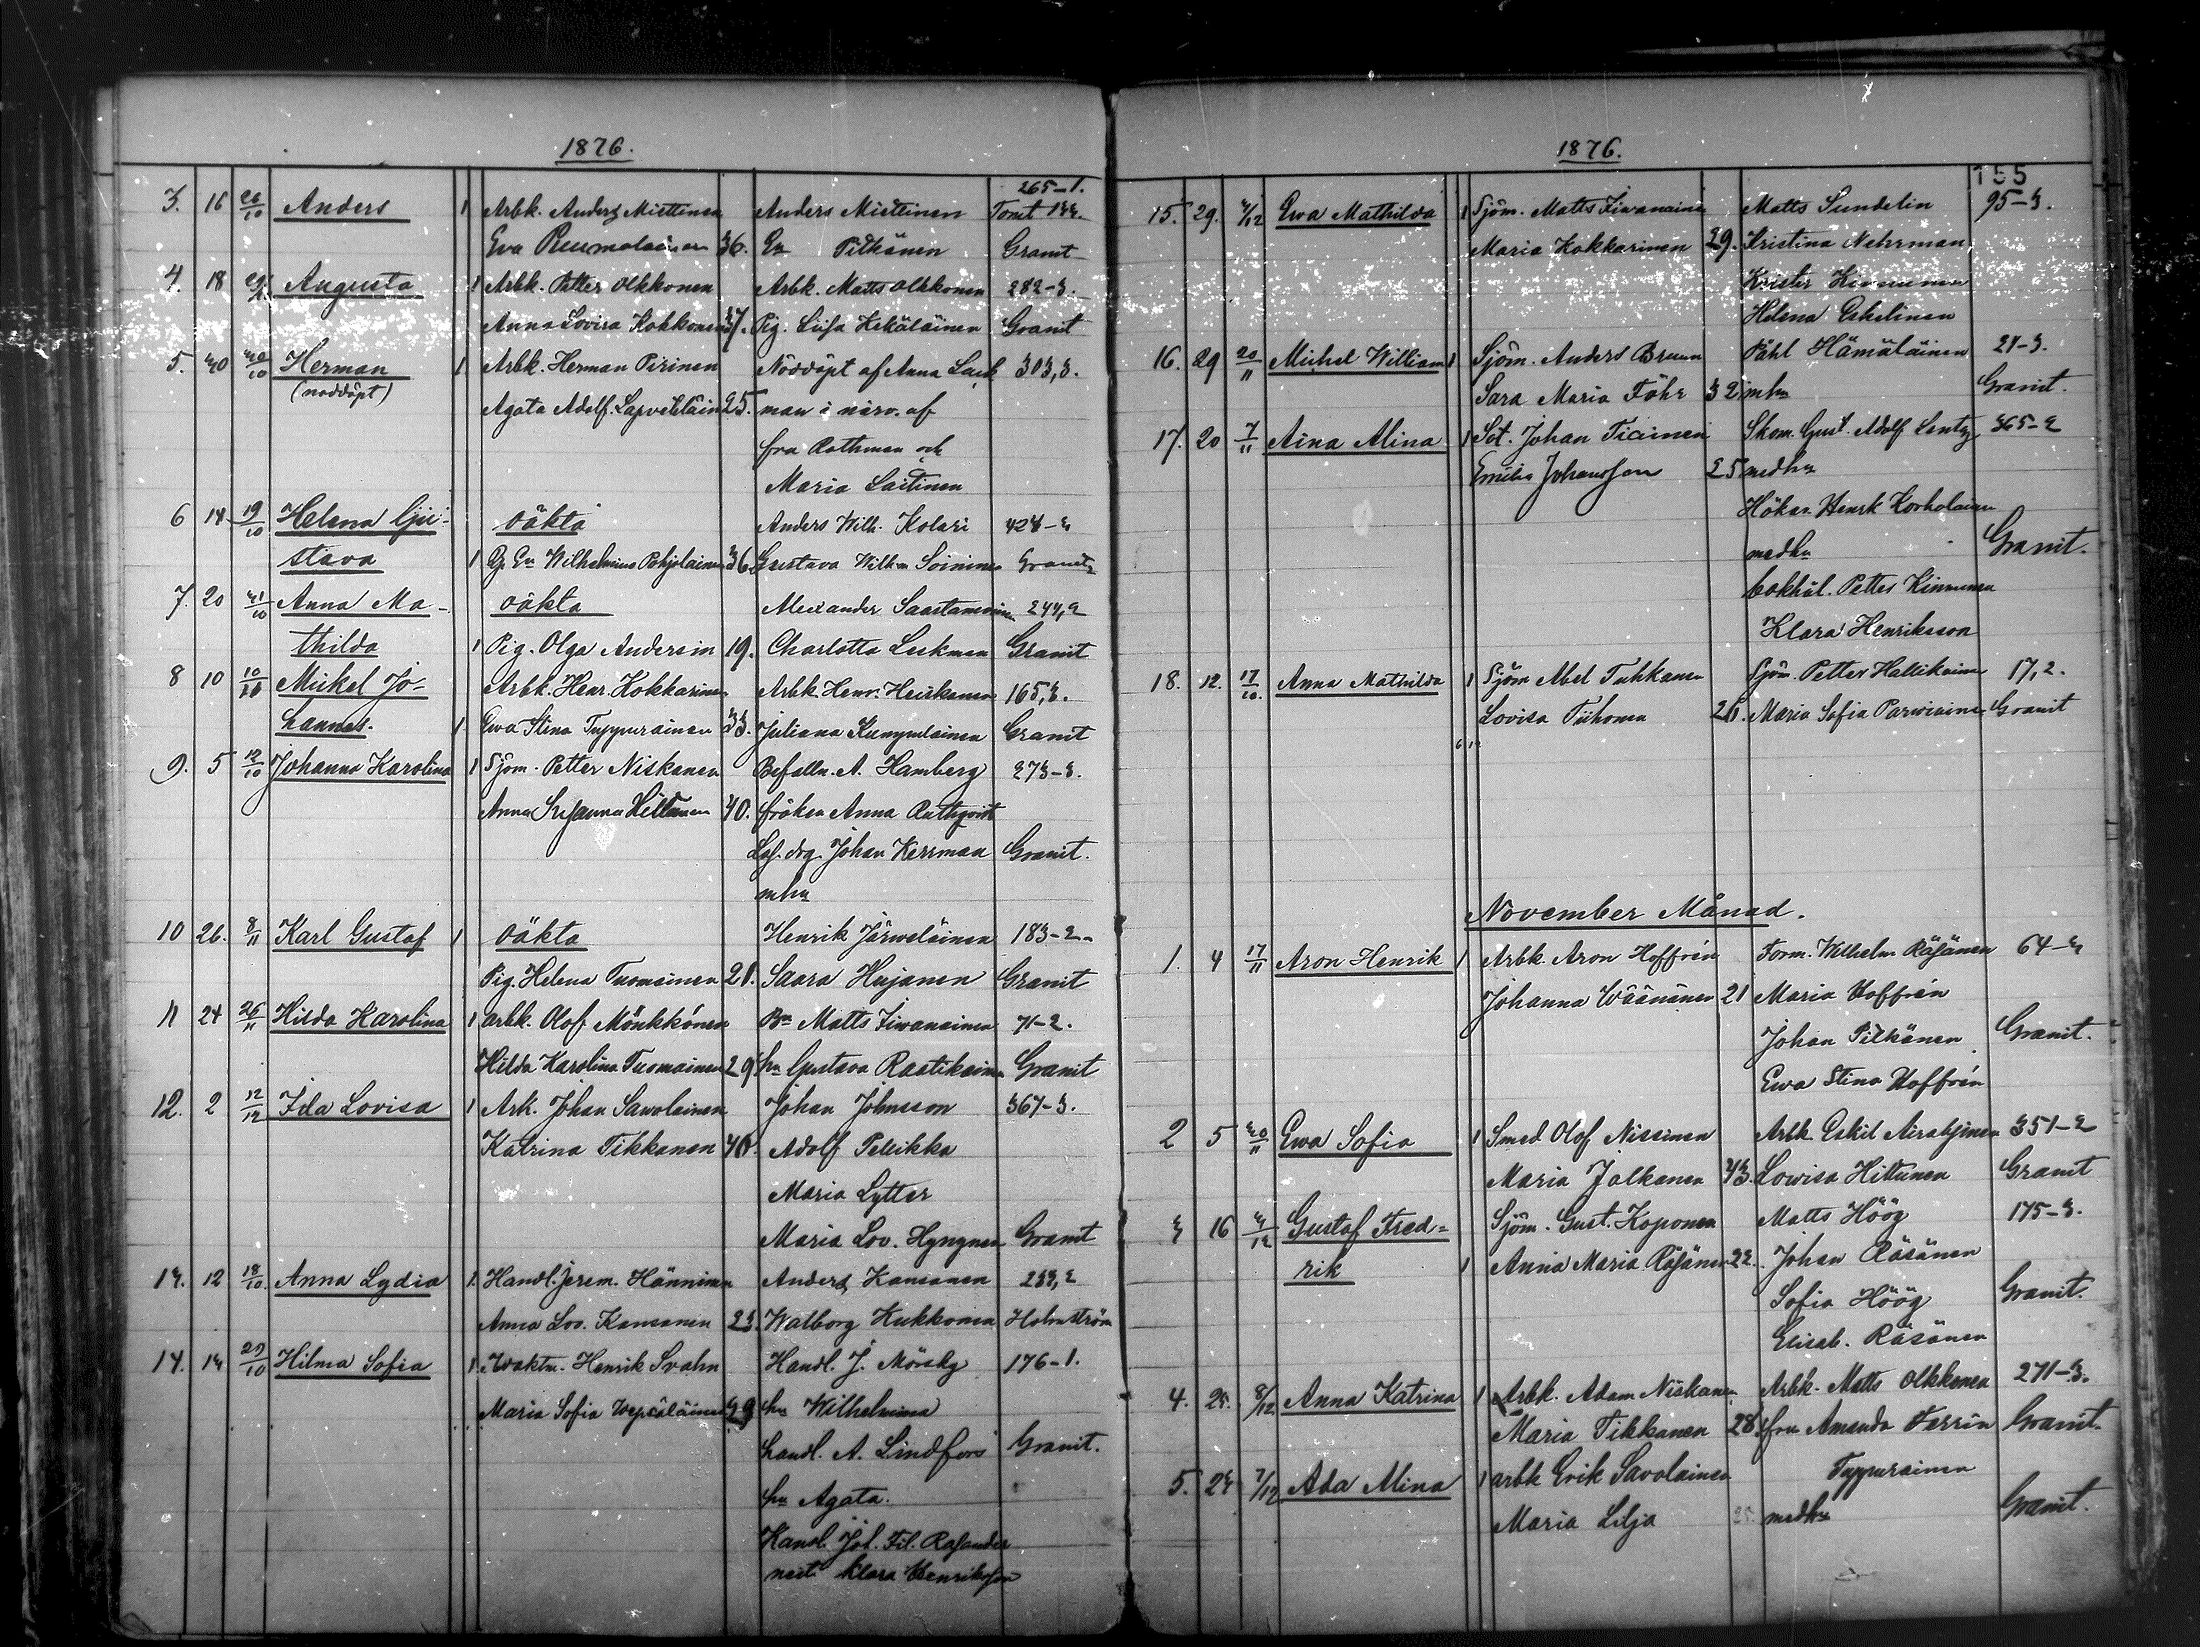 1876.
265-1.
3. 16 26/10 Anders 1 Arbk. Anders Miettinen Anders Miettinen Tomt 133.
Eva Reumalainen 36. Eva Pitkänen Granit
4. 18 29/X Augusta 1 Arbk. Petter Olkkonen Arbk. Matts Olkkonen 282-3.
Anna Lovisa Kokkonen 37. Pig. Lisa Kekäläinen Granit
5. 30 30/10 Herman 1 Arbk. Herman Pirinen Nöddöpt af Anna Lack 303,3.
(noddöpt) Agata Adolf. Lapveteläin 25. man i närv. af
fru Rothman och
Maria Laitinen
6 14 19/10 Helena Gu- oäkta Anders Wilh. Kolari 424-3
stava 1 Pg Eva Wilhelmina Pohjolainen 36 Gustava Wilh:a Soininen Granit
7. 20 31/10 Anna Ma- oäkta Alexander Saastamoinen 244,2
thilda 1 Pig. Olga Andersin 19. Charlotta Leskman Granit
8 10 10/10 Mickel Jo- Arbk. Henr. Kokkarinen Arbk. Henr. Heiskanen 165,3.
hannes. 1. Ewa Stina Tuppurainen 33. Juliana Kumpulainen Granit
9. 5 12/10 Johanna Karolina 1 Sjöm. Petter Niskanen Befalln. A. Hamberg 273-3.
Anna Susanna Hiltunen 40. fröken Anna Rathqvist
Johan Kerrman Granit.
mhu
10 26. 8/11 Karl Gustaf 1 oäkta Henrik Järweläinen 183-2.
Pig. Helena Tuomainen 21. Saara Hujanen Granit
11 24 26/11 Hilda Karolina 1 arbk. Olof Mönkkönen Bn Matts Iiwanainen 71-2.
Hilda Karolina Tuomainen 29 hu Gustava Rastikainen Granit
12. 2 12/12 Ida Lovisa 1 Ark. Johan Sawolainen Johan Johnsson 367-3.
Katrina Tikkanen 40. Adolf Pellikka
Maria Lytter
Maria Lov. Hyngnen Granit
13. 12 18/10. Anna Lydia 1. Handl. Jerem. Hänninen Anders Kansanen 233,2
Anna Lov. Kansanen 23 Walborg Kukkonen Holmström
14. 13 29/10 Hilma Sofia 1 Henrik Svahn Handl. J. Mörsky 176-1.
Maria Sofia Wepsäläinen 29 hu Wilhelmina
handl. A. Lindfors Granit.
hu Agata.
Handl. Joh. Fil. Rosander
Klara Henriksson
1876.
155
15. 29. 3/12 Ewa Mathilda 1 Sjöm. Matts Iiwanainen Matts Sundelin 95-3.
Maria Kokkarinen 29. Kristina Nehrman
Krister Kinnunen
Helena Eskelinen
16. 29 20/11 Michel William 1 Sjöm. Anders Bruun Påhl Hämäläinen 21-3.
Sara Maria Föhr 32 mhu Granit.
17. 20 7/11 Aina Alina 1 Sot. Johan Ticinen Skom. Gust. Adolf Lentz 365-2
Emilia Johansson 25 medhu
Hökar. Henrik Korholainen
medhu Granit.
bokhål. Petter Kinnunen
Klara Henriksson
18. 12. 17/10. Anna Mathilda 1 Sjöm Abel Tuhkanen Sjöm. Petter Hallikainen 17,2.
Lovisa Tiihonen 26. Maria Sofia Parwiainen Granit
6 12
November Månad.
1. 4 17/11 Aron Henrik 1 Arbk. Aron Hoffrén Torm. Wilhelm Räsänen 64-3
Johanna Wäänänen 21 Maria Hoffrén
Johan Pitkänen Granit.
Ewa Stina Hoffrén
2 5 30/11 Ewa Sofia 1 Smed Olof Nissinen Arbk. Eskil Airaksinen 351-2
Maria Jalkanen 43. Lowisa Hiltunen Granit
3 16 3/12 Gustaf Fred= Sjöm. Gust. Koponen Matts Höög 175-3.
rik 1 Anna Maria Räsänen 22. Johan Räsänen
Sofia Höög Granit.
Elisab. Räsänen
4. 25. 8/12 Anna Katrina 1 Arbk. Adam Niskanen Arbk. Matts Olkkonen 271-3.
Maria Tikkanen 28. fru Amanda Farrin Granit.
5. 23 7/12 Ada Alina 1 arbk Erik Savolainen Tuppurainen
Maria Lilja 25. medhu Granit.